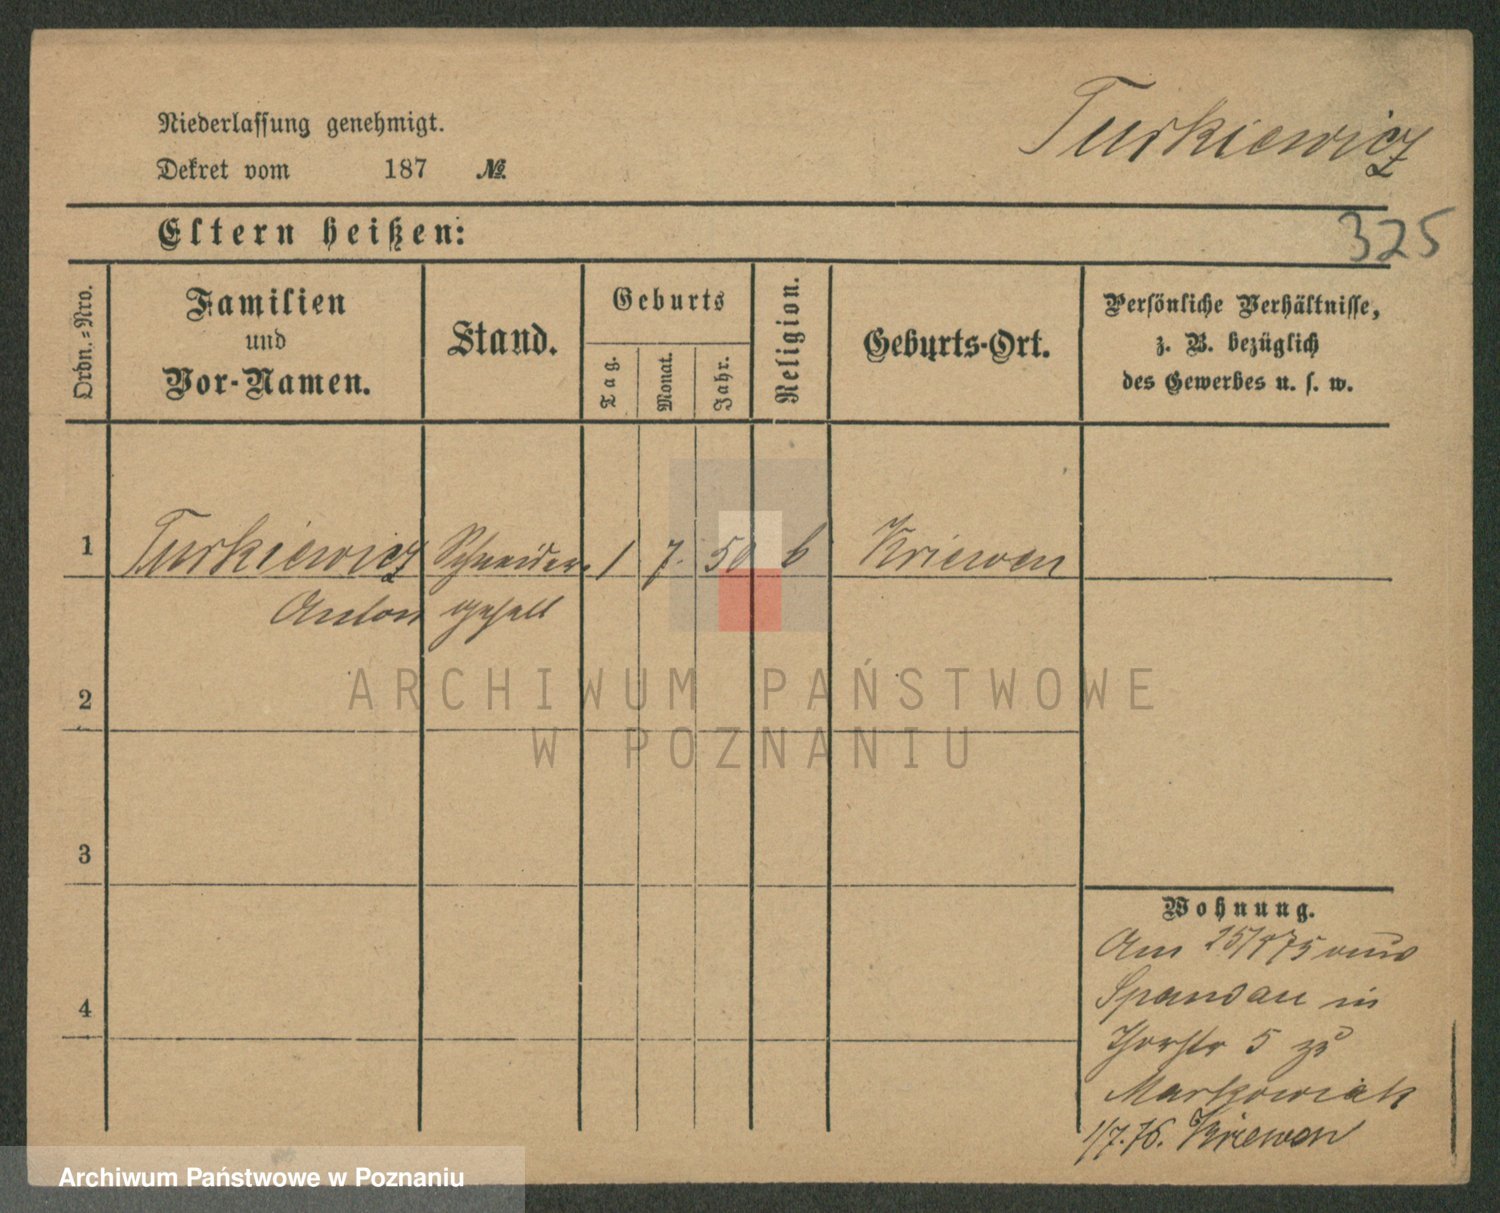 Turkiewicz
Niederlassung genehmigt.
Dekret vom 187 №.
325
Eltern heißen:
Ordn.-Nro.
Familien
und
Vor-Namen.
Stand.
Geburts
Tag.
Monat.
Jahr.
Religion.
Geburts-Ort.
Persönliche Verhältnisse,
z. B. bezüglich
des Gewerbes u. s. w.
1 Turkiewicz Schneider 1 7. 50 Kriewen
Anton gesell
2
3
4
Wohnung.
Am 25/ 75 aus
Spandau in
5 zu
Markowiak
1/7.76. Kriewen
ARCHIWUM PAŃSTWOWE
W POZNANIU
Archiwum Państwowe w Poznaniu